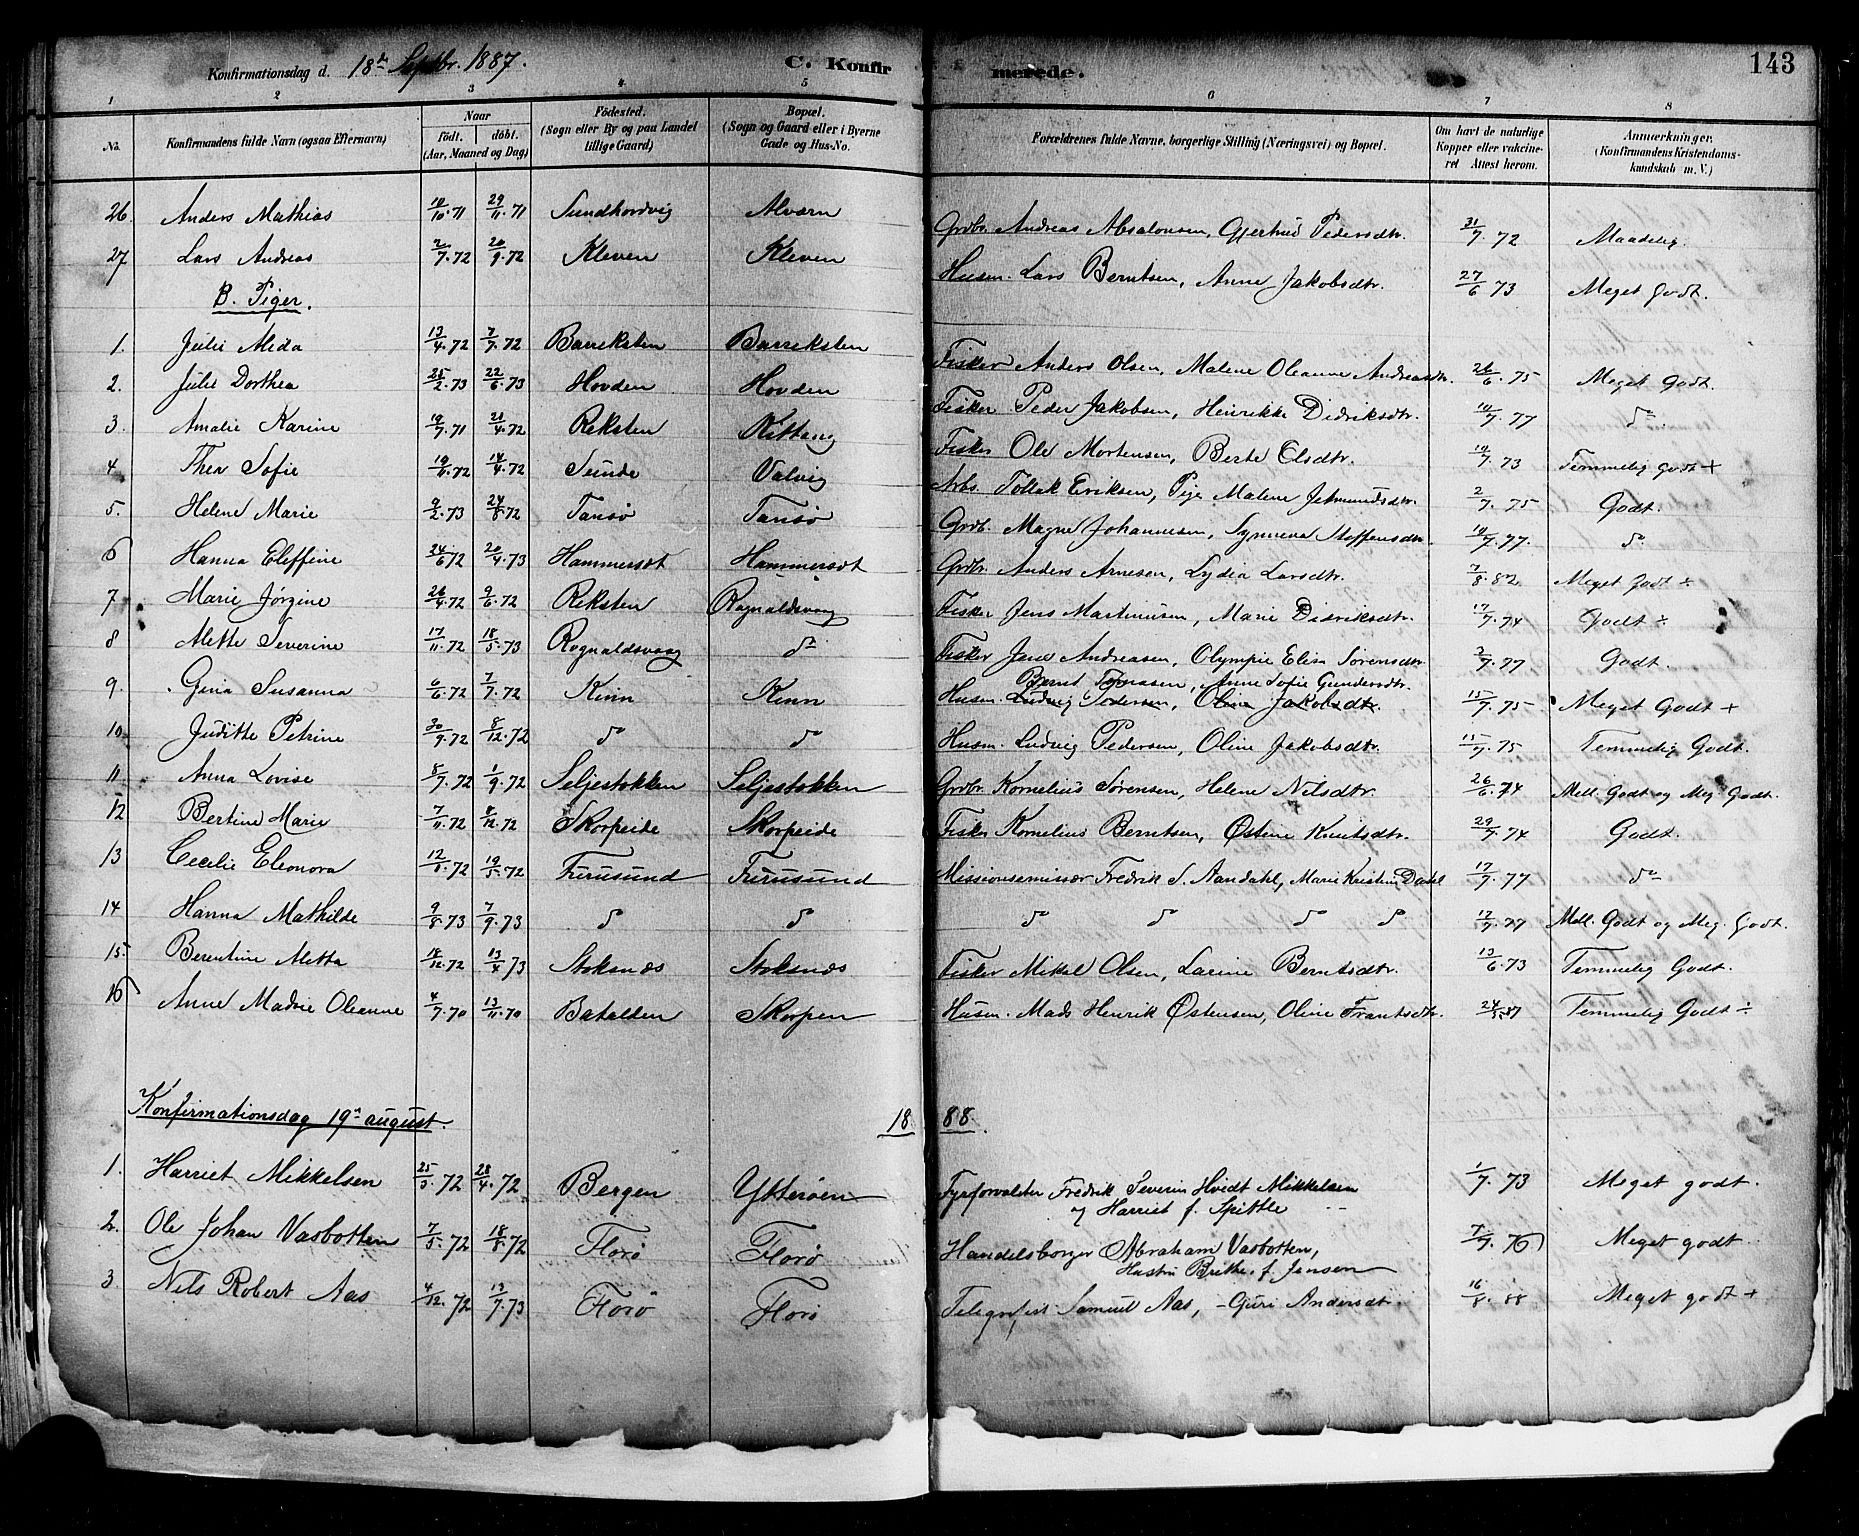 Konfirmationsdag d. 18de Septbr. 1887. C. Konfirmerede. 143
1 2 3 4 5 6 7 8
No. Konfirmandens fulde Navn (ogsaa Efternavn) Naar født. døbt. (Aar, Maaned og Dag) Fødested. (Sogn eller By og paa Landet tillige Gaard) Bopæl. (Sogn og Gaard eller i Byerne Gade og Hus-No. Forældrenes fulde Navne, borgerlige Stilling (Næringsvei) og Bopæl. Om havt de naturlige Kopper eller vaccineret Attest herom. Anmærkninger. (Konfirmandens Kristendomskundskab m. V.)
26. Anders Mathias 10/10.71 29/11.71 Sundhordvig Alværn Grdbr. Andreas Absalonsen, Gjertrud Pedersdtr. 31/7.72 Maadelig.
27 Lars Andreas 2/7.72 20/9.72 Kleven Kleven Husm. Lars Berntsen, Anne Jakobsdtr. 27/6 73 Meget Godt.
B. Piger.
1. Julie Alida 13/4.72 7/7.72 Barreksten Barreksten Fisker Anders Olsen, Malene Oleanne Andreasdtr. 26/6.75 Meget Godt.
2. Julie Dorthea 25/2.73 22/6.73 Hovden Hovden Fisker Peder Jakobsen, Henrikke Didriksdtr. 10/7.77 do
3. Amalie Karine 19/7.71 21/4.72 Reksten Kittang Fisker Ole Mortensen, Berte Elsdtr. 10/7.73 Temmelig Godt +
4. Thea Sofie 14/4.72 Sunde Valvig Arb. Tollak Eriksen, Pige Malene Jetmundsdtr. 2/7.75 Godt.
5. Helene Marie 9/2.73 24/8.72 Tansø Tansø Grdb. Magne Johannesen, Synneva Steffensdtr. 10/7.77. do
6 Hanna Eleffine 24/6 72 20/4.73 Hammersæt Hammersæt Grdbr. Anders Arnesen, Lydia Larsdtr. 7/8.82 Meget Godt ÷
7 Marie Jørgine 26/4.72 9/6.72 Reksten Rognaldsvaag Fisker Jens Martinusen, Marie Didriksdtr. 17/7.74 Godt ÷
8 Mette Severine 17/11.72 18/5.73 Rognaldsvaag do Fisker Jens Andreasen, Olympie Elisa Sørensdtr. 2/7.77 Godt.
9. Gina Susanna 6/6.72 7/7.72 Kinn Kinn Bernt Tomasen, Anne Sofie Gundersdtr.
Husm. Ludvig Pedersen, Oline Jakobsdtr. 15/7.75 Meget Godt +
10 Juditte Petrine 30/9.72 8/12.72 do do Husm. Ludvig Pedersen, Oline Jakobsdtr. 15/7.75 Temmelig Godt.
11 Anna Lovise 8/7.72 1/9.72 Seljestokken Seljestokken Grdbr. Kornelius Sørensen, Helene Nilsdtr. 26/6.74 Mell. Godt og Meg. Godt.
12 Bertine Marie 7/11.72 8/12.72 Skorpeide Skorpeide Fisker Kornelius Berntsen, Østine Knutsdtr. 29/7.74 Godt.
13 Cecilie Eleonora 19/5.72 Furusund Furusund Missionsemissær Fredrik S. Aandahl, Marie Kristine Dahl 17/7.77 do
14 Hanna Mathilde 9/8.73 7/9.73 do do do do do do 17/7.77 Mell. Godt og Meg. Godt.
15. Berentine Metta 18/12.72 13/4.73 Stoksnæs Stoksnæs Fisker Mikal Olsen, Larine Berntsdtr. 13/6.73 Temmelig Godt.
16 Anne Madsie Oleanne 4/7.70 13/11.70 Batalden Skorpen Husm. Mads Henrik Østensen, Oline Frantsdtr. 24/5.87 Temmelig Godt ÷
Konfirmationsdag 19de august. 1888.
1. Harriet Mikkelsen 25/3.72 28/4.72 Bergen Ytterøen Fyrforvalter Fredrik Severin Hvidt Mikkelsen
og Harriet f. Spittle 1/7.73 Meget godt.
2. Ole Johan Vasbotten 7/5.72 18/8.72 Florø Florø Handelsborger Abraham Vasbotten,
Hustru Brithe f. Jensen 7/7.76 Meget godt
3. Nils Robert Aas 4/12.72 13/7.73 Florø Florø Telegrafist Samuel Aas, Guri Andersdt. 16/8.88 Meget godt +